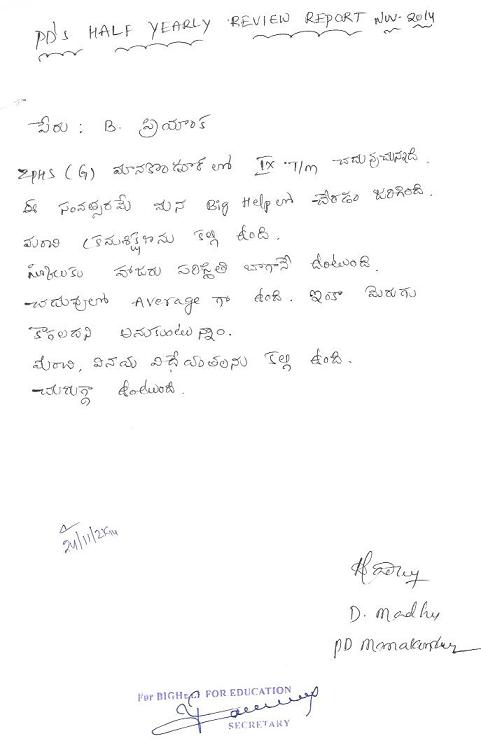 PD's HALF YEARLY REVIEW REPORT NOV-2014
పేరు : B. ప్రియాంక
ZPHS (G) మానకొండూర్ లో IX T/m చదువుచున్నది.
ఈ సంవత్సరమే మన Big Help లో చేరడం జరిగింది.
మంచి క్రమశిక్షణను కల్గి ఉంది.
స్కూలుకు హాజరు పరిస్థితి బాగానే ఉంటుంది.
చదువులో Average గా ఉంది. ఇంకా మెరుగు
కావాలని అనుకుంటున్నాం.
మంచి, వినయ విధేయతలను కల్గి ఉంది.
చురుగ్గా ఉంటుంది.
24/11/2014
D. Madhu
PD Manakondur
For BIGH FOR EDUCATION
SECRETARY